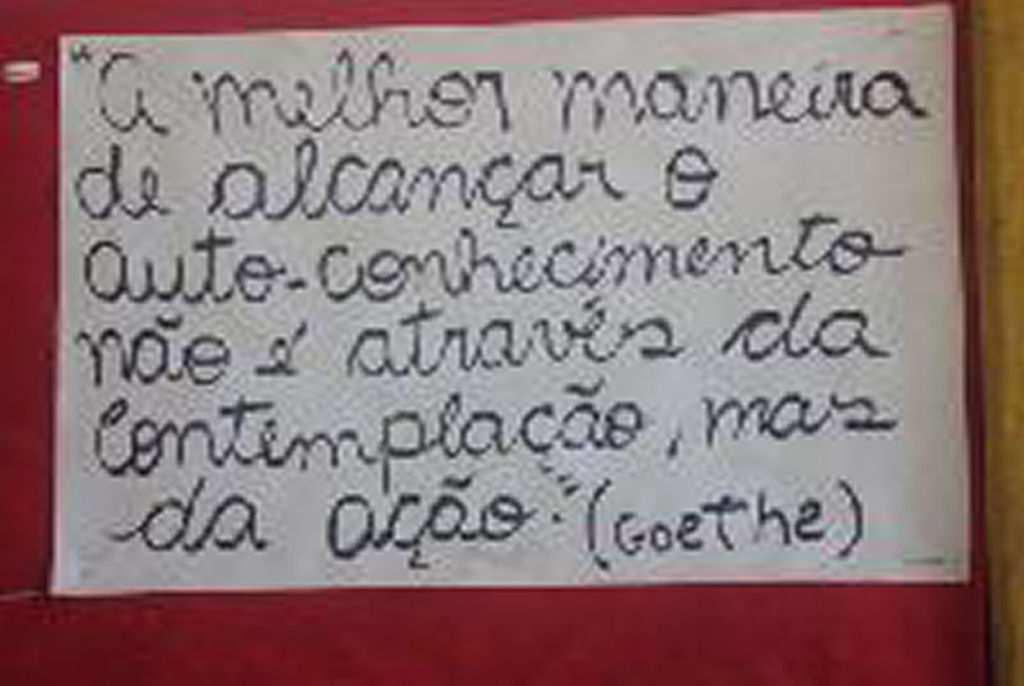 "A melhor maneira
de alcançar o
auto-conhecimento
não é através da
contemplação, mas
da ação". (Goethe)